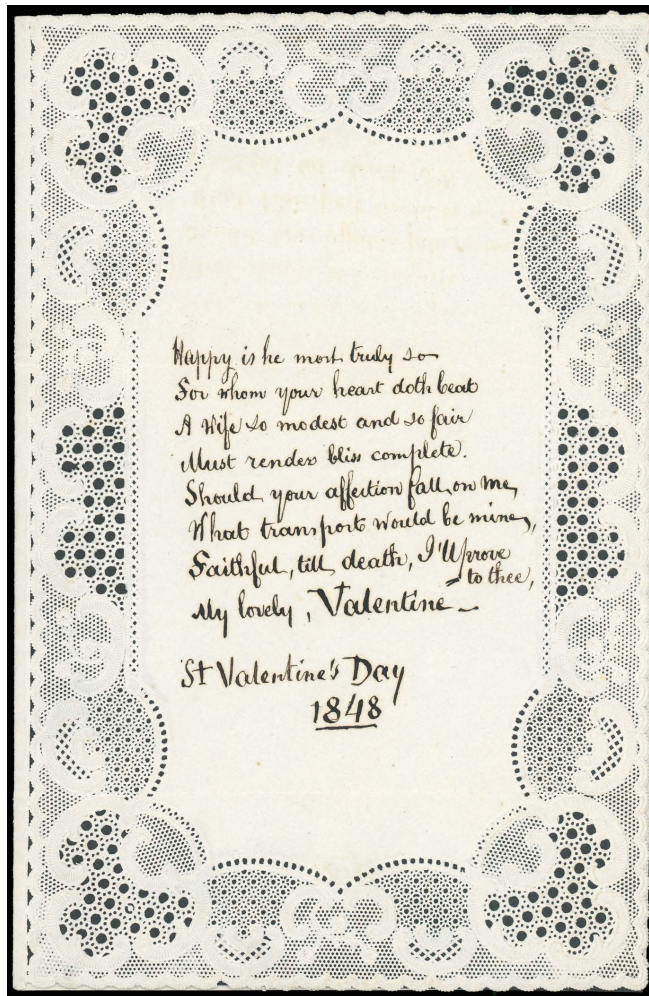 Happy is he most truly so
For whom your heart doth beat
A Wife so modest and so fair
Must render bliss complete.
Should your affection fall on me,
What transport would be mine,
Faithful, till death, I'll prove
to thee,
My lovely, Valentine –
St Valentine's Day
1848